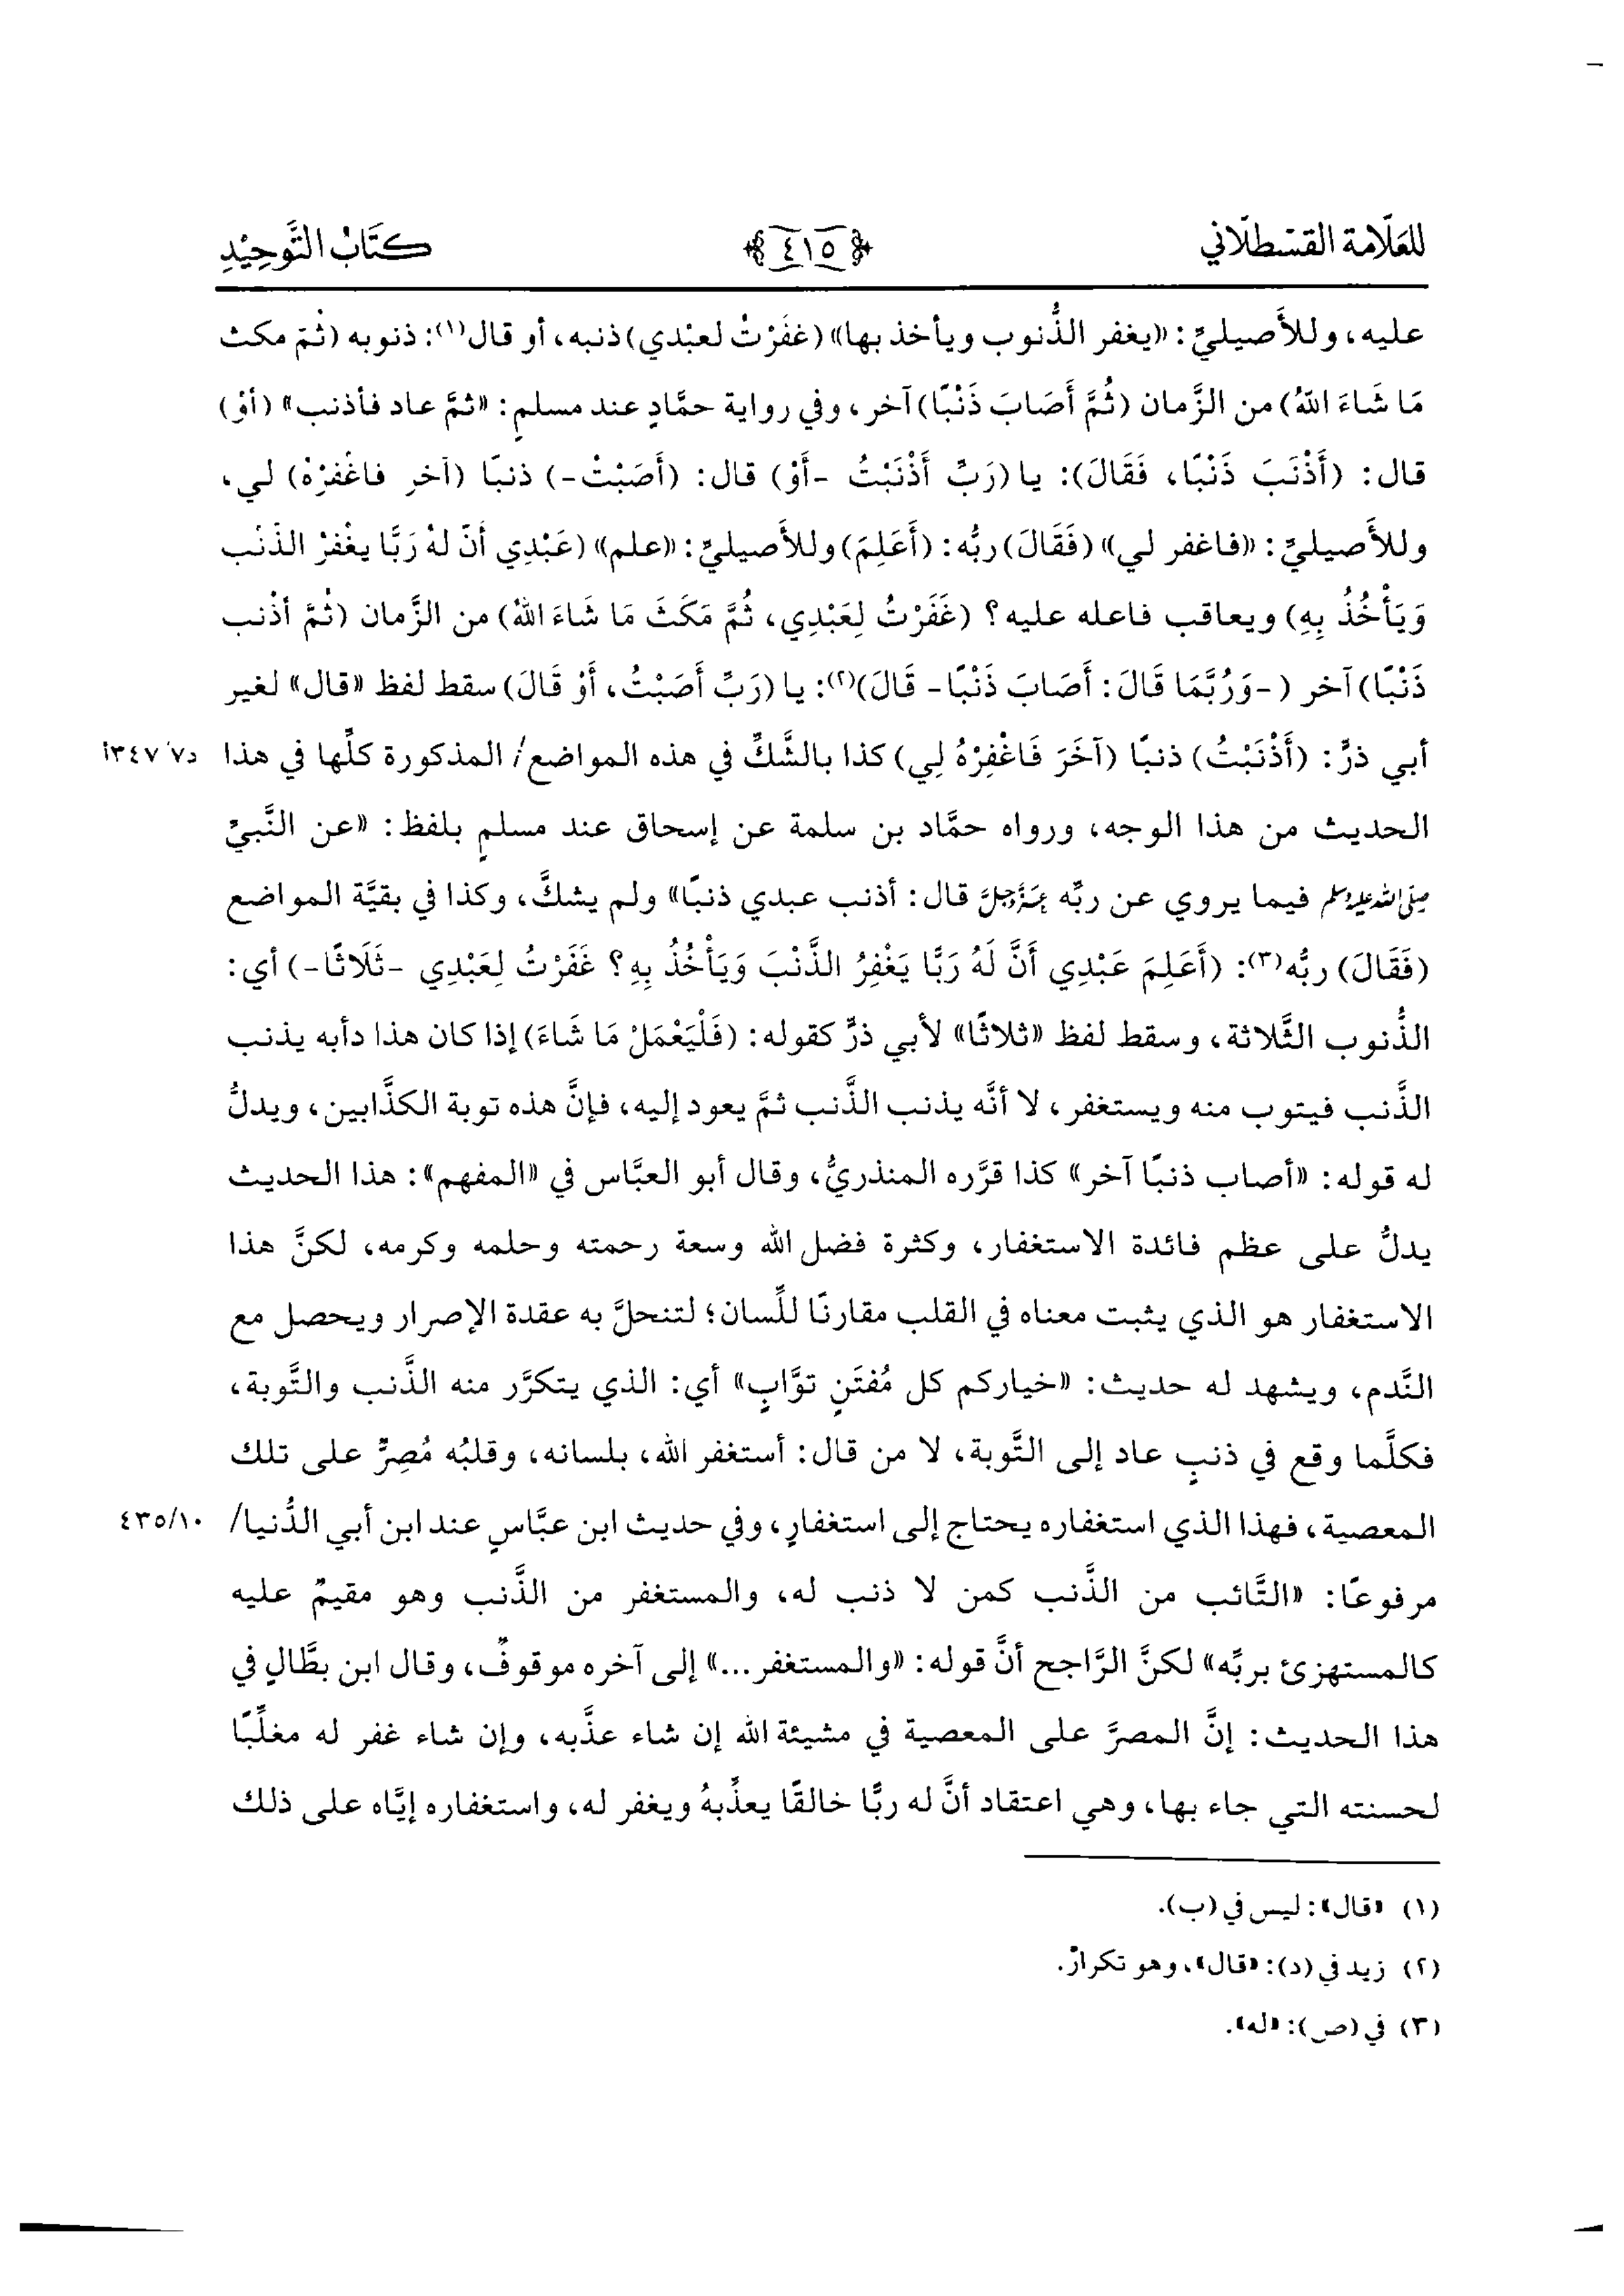 للعَلّامة القسْطلّاني ٤١٥ كتَابُ التَّوحِيْدِ
عليه، وللأَصيليِّ: «يغفر الذُّنوب ويأخذ بها» (غفَرْتُ لعبْدي) ذنبه، أو قال(١): ذنوبه (ثُمّ مكث
مَا شَاءَ اللهُ) من الزَّمان (ثُمَّ أَصَابَ ذَنْبًا) آخر، وفي رواية حمَّادٍ عند مسلمٍ: «ثمَّ عاد فأذنب» (أوْ)
قال: (أَذْنَبَ ذَنْبًا، فَقَالَ): يا (رَبِّ أَذْنَبْتُ -أَوْ) قال: (أَصَبْتُ-) ذنبًا (آخر فاغْفرْهُ) لي،
وللأَصيليِّ: «فاغفر لي» (فَقَالَ) ربُّه: (أَعَلِمَ) وللأَصيليِّ: «علم» (عَبْدِي أنّ لهُ رَبًّا يغْفرُ الذّنْب
وَيَأْخُذُ بِهِ) ويعاقب فاعله عليه؟ (غَفَرْتُ لِعَبْدِي، ثُمَّ مَكَثَ مَا شَاءَ اللهُ) من الزَّمان (ثُمَّ أذْنب
ذَنْبًا) آخر (-وَرُبَّمَا قَالَ: أَصَابَ ذَنْبًا- قَالَ)(٢): يا (رَبِّ أَصَبْتُ، أَوْ قَالَ) سقط لفظ «قال» لغير
أبي ذرٍّ: (أَذْنَبْتُ) ذنبًا (آخَرَ فَاغْفِرْهُ لِي) كذا بالشَّكِّ في هذه المواضع/ المذكورة كلِّها في هذا د٧/ ٣٤٧أ
الحديث من هذا الوجه، ورواه حمَّاد بن سلمة عن إسحاق عند مسلمٍ بلفظ: «عن النَّبيِّ
صلى الله عليه وسلم فيما يروي عن ربِّه عَزَّوَجَلَّ قال: أذنب عبدي ذنبًا» ولم يشكَّ، وكذا في بقيَّة المواضع
(فَقَالَ) ربُّه(٣): (أَعَلِمَ عَبْدِي أَنَّ لَهُ رَبًّا يَغْفِرُ الذَّنْبَ وَيَأْخُذُ بِهِ؟ غَفَرْتُ لِعَبْدِي -ثَلَاثًا-) أي:
الذُّنوب الثَّلاثة، وسقط لفظ «ثلاثًا» لأبي ذرٍّ كقوله: (فَلْيَعْمَلْ مَا شَاءَ) إذا كان هذا دأبه يذنب
الذَّنب فيتوب منه ويستغفر، لا أنَّه يذنب الذَّنب ثمَّ يعود إليه، فإنَّ هذه توبة الكذَّابين، ويدلُّ
له قوله: «أصاب ذنبًا آخر» كذا قرَّره المنذريُّ، وقال أبو العبَّاس في «المفهم»: هذا الحديث
يدلُّ على عظم فائدة الاستغفار، وكثرة فضل الله وسعة رحمته وحلمه وكرمه، لكنَّ هذا
الاستغفار هو الذي يثبت معناه في القلب مقارنًا للِّسان؛ لتنحلَّ به عقدة الإصرار ويحصل مع
النَّدم، ويشهد له حديث: «خياركم كل مُفتَنٍ توَّابٍ» أي: الذي يتكرَّر منه الذَّنب والتَّوبة،
فكلَّما وقع في ذنبٍ عاد إلى التَّوبة، لا من قال: أستغفر الله، بلسانه، وقلبُه مُصِرٌّ على تلك
المعصية، فهذا الذي استغفاره يحتاج إلى استغفارٍ، وفي حديث ابن عبَّاسٍ عند ابن أبي الدُّنيا/ ٤٣٥/١٠
مرفوعًا: «التَّائب من الذَّنب كمن لا ذنب له، والمستغفر من الذَّنب وهو مقيمٌ عليه
كالمستهزئ بربِّه» لكنَّ الرَّاجح أنَّ قوله: «والمستغفر...» إلى آخره موقوفٌ، وقال ابن بطَّالٍ في
هذا الحديث: إنَّ المصرَّ على المعصية في مشيئة الله إن شاء عذَّبه، وإن شاء غفر له مغلِّبًا
لحسنته التي جاء بها، وهي اعتقاد أنَّ له ربًّا خالقًا يعذِّبهُ ويغفر له، واستغفاره إيَّاه على ذلك
(١) «قال»: ليس في (ب).
(٢) زيد في (د): «قال»، وهو تكرارٌ.
(٣) في (ص): «له».